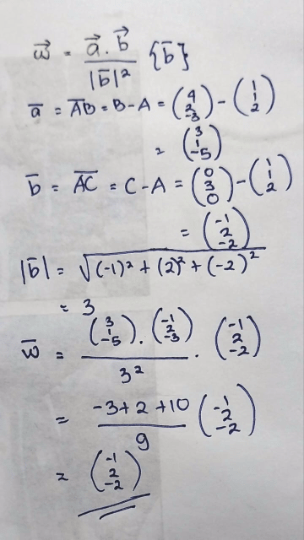 w⃗ = a⃗ . b⃗ / |b̄|² {b̄}
ā = A̅B̅ = B - A = (4 2 -3) - (1 1 2)
= (3 1 -5)
b̄ = A̅C̅ = C - A = (0 3 0) - (1 1 2)
= (-1 2 -2)
|b̄| = √(-1)² + (2)² + (-2)²
= 3
w̄ = (3 1 -5) . (-1 2 -3) / 3² . (-1 2 -2)
= -3 + 2 + 10 / 9 (-1 2 -2)
= (-1 2 -2)